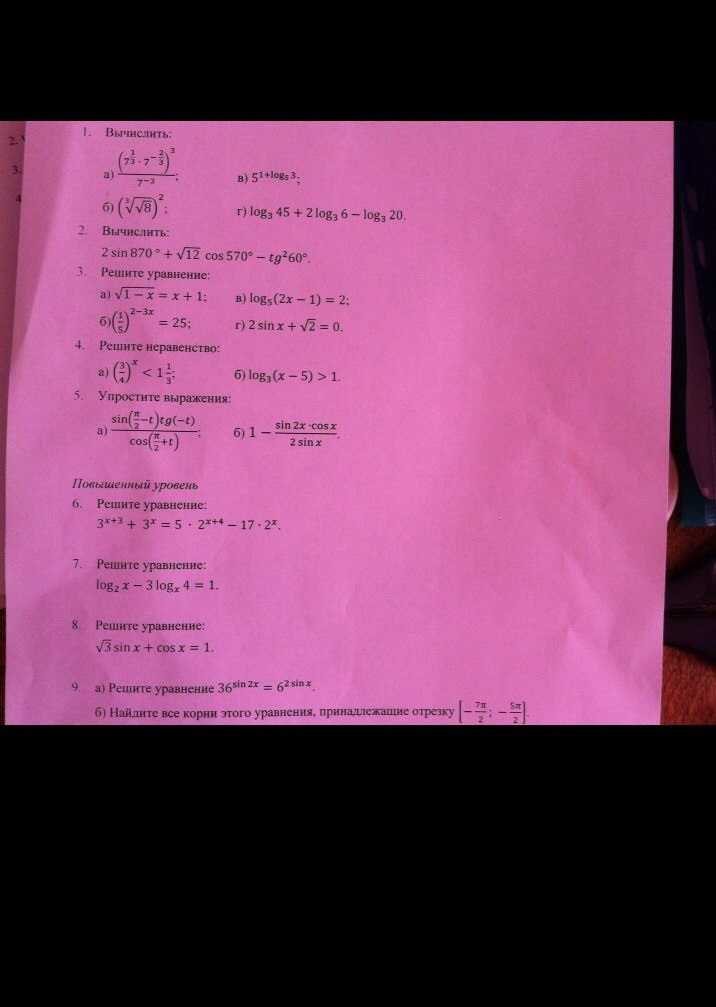 2.
3.
4
1. Вычислить:
а) \frac{(7^{\frac{1}{3}} · 7^{-\frac{2}{3}})^3}{7^{-3}}; в) 5^{1+log_5 3};
б) (\sqrt[3]{\sqrt{8}})^2; г) log_3 45 + 2 log_3 6 − log_3 20.
2. Вычислить:
2 sin 870 ° + √12 cos 570° − tg²60°.
3. Решите уравнение:
а) \sqrt{1 − x} = x + 1; в) log_5(2x − 1) = 2;
б)(\frac{1}{5})^{2−3x} = 25; г) 2 sin x + √2 = 0.
4. Решите неравенство:
а) (\frac{3}{4})^x < 1\frac{1}{3}; б) log_3(x − 5) > 1.
5. Упростите выражения:
а) \frac{sin(\frac{π}{2}−t)tg(−t)}{cos(\frac{π}{2}+t)}; б) 1 − \frac{sin 2x ·cos x}{2 sin x}.
Повышенный уровень
6. Решите уравнение:
3^{x+3} + 3^x = 5 · 2^{x+4} − 17 · 2^x.
7. Решите уравнение:
log_2 x − 3 log_x 4 = 1.
8. Решите уравнение:
√3 sin x + cos x = 1.
9. а) Решите уравнение 36^{sin 2x} = 6^{2 sin x}.
б) Найдите все корни этого уравнения, принадлежащие отрезку [−\frac{7π}{2}; −\frac{5π}{2}].